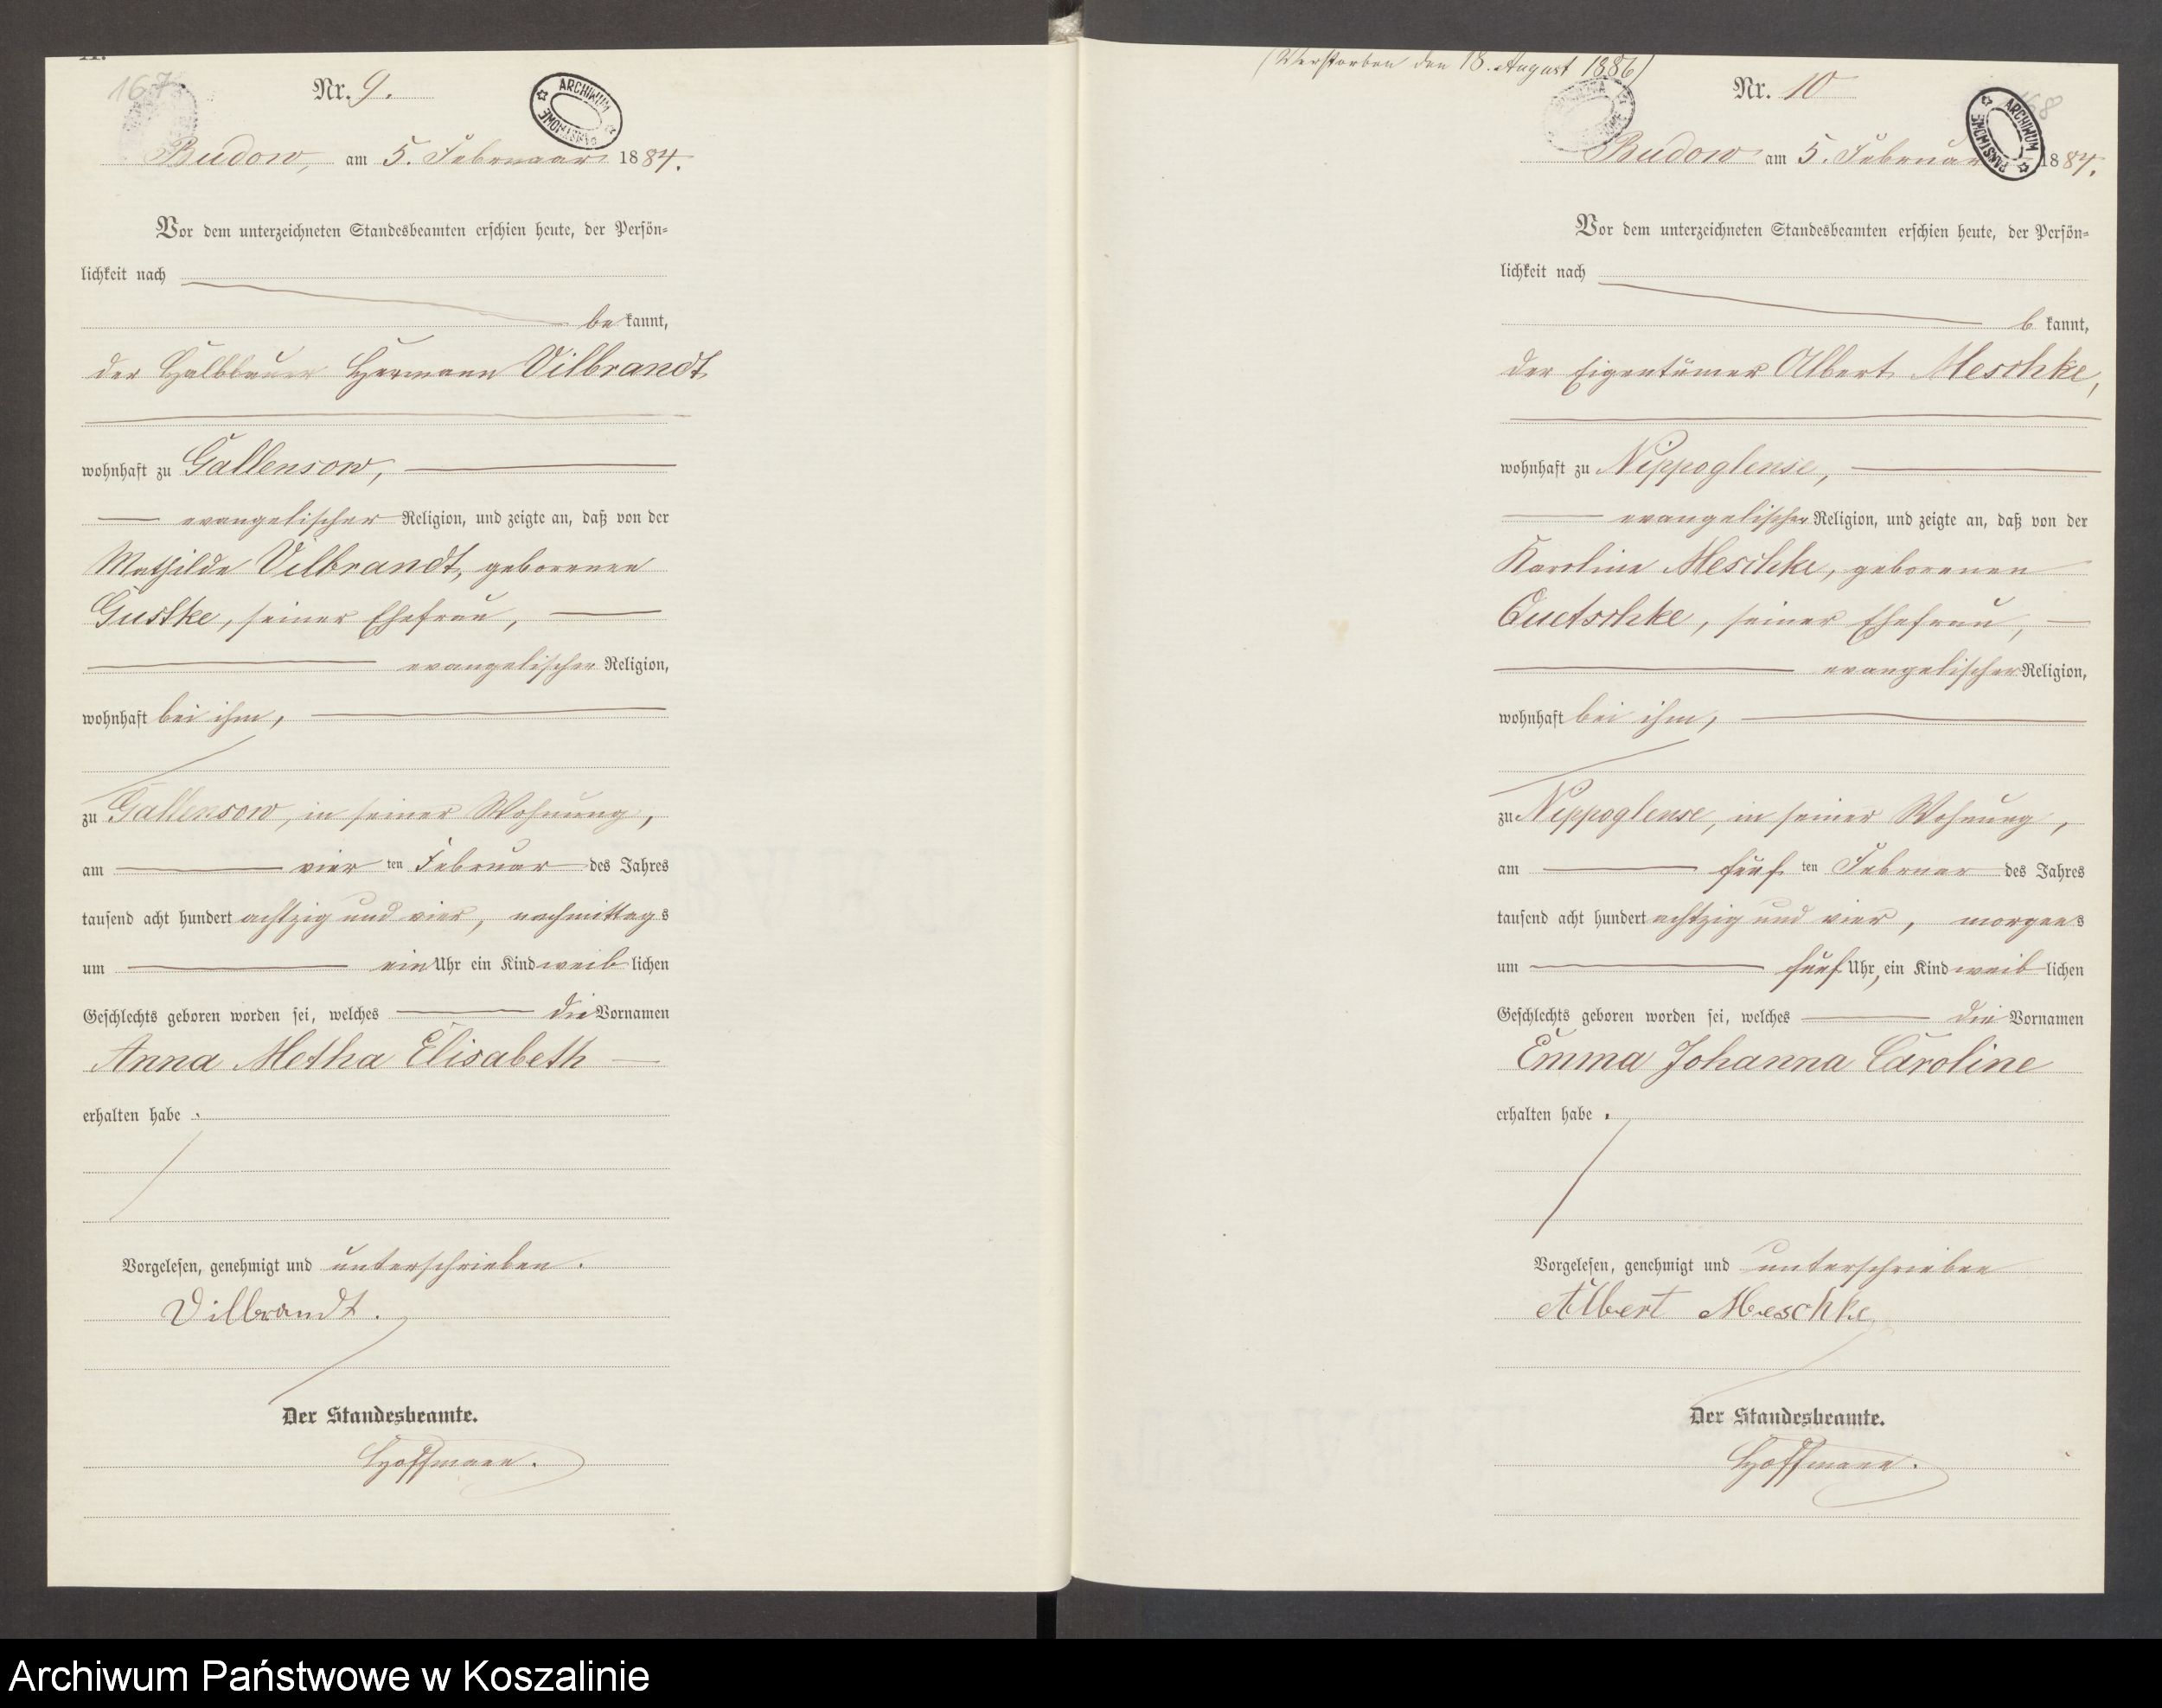 167
Nr. 9.
ARCHIWUM PAŃSTWOWE
Budow, am 5. Februaar 1884.
Vor dem unterzeichneten Standesbeamten erschien heute, der Persön-
lichkeit nach
be kannt,
der Halbbauer Hermann Vilbrandt
wohnhaft zu Gallensow,
evangelischer Religion, und zeigte an, daß von der
Mathilde Vilbrandt, geborenen
Gustke, seiner Ehefrau,
evangelischer Religion,
wohnhaft bei ihm,
zu Gallensow, in seiner Wohnung,
am vier ten Februar des Jahres
tausend acht hundert achtzig und vier, nachmittags
um ein Uhr ein Kind weib lichen
Geschlechts geboren worden sei, welches die Vornamen
Anna Metha Elisabeth
erhalten habe.
Vorgelesen, genehmigt und unterschrieben.
Vilbrandt.
Der Standesbeamte.
Hoffmann.
(Verstorben den 18. August 1886)
Nr. 10
ARCHIWUM PAŃSTWOWE
168
Budow am 5. Februar 1884.
Vor dem unterzeichneten Standesbeamten erschien heute, der Persön-
lichkeit nach
b kannt,
der Eigentümer Albert Meschke,
wohnhaft zu Nippoglense,
evangelischer Religion, und zeigte an, daß von der
Karoline Meschke, geborenen
Quetschke, seiner Ehefrau,
evangelischer Religion,
wohnhaft bei ihm,
zu Nippoglense, in seiner Wohnung,
am fünf ten Februar des Jahres
tausend acht hundert achtzig und vier, morgens
um fünf Uhr, ein Kind weib lichen
Geschlechts geboren worden sei, welches die Vornamen
Emma Johanna Caroline
erhalten habe.
Vorgelesen, genehmigt und unterschrieben
Albert Meschke
Der Standesbeamte.
Hoffmann.
Archiwum Państwowe w Koszalinie